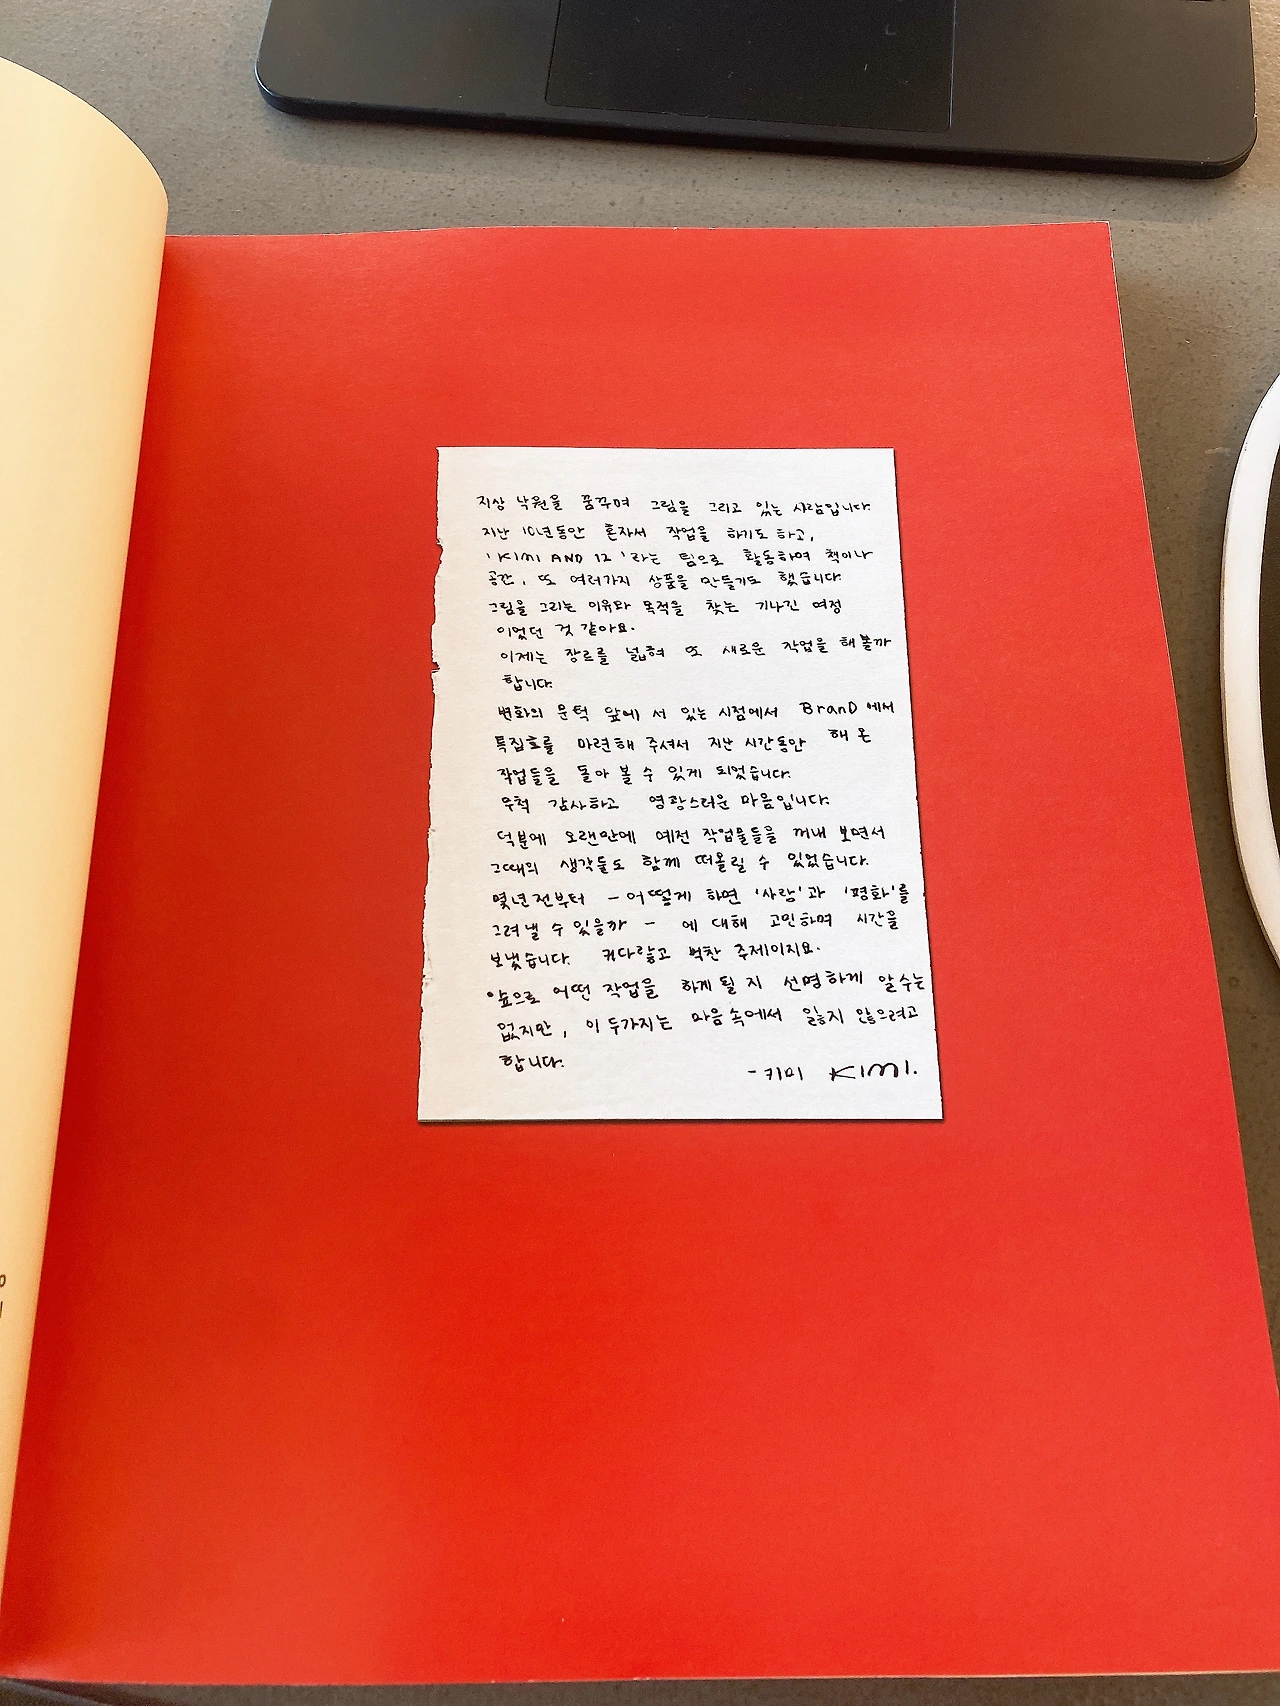 지상 낙원을 꿈꾸며 그림을 그리고 있는 사람입니다.
지난 10년동안 혼자서 작업을 하기도 하고,
'KIMI AND 12'라는 팀으로 활동하며 책이나
공간, 또 여러가지 상품을 만들기도 했습니다.
그림을 그리는 이유와 목적을 찾는 기나긴 여정
이었던 것 같아요.
이제는 장르를 넓혀 또 새로운 작업을 해볼까
합니다.
변화의 문턱 앞에 서 있는 시점에서 BranD에서
특집호를 마련해 주셔서 지난 시간동안 해 온
작업들을 돌아 볼 수 있게 되었습니다.
무척 감사하고 영광스러운 마음입니다.
덕분에 오랜만에 예전 작업물들을 꺼내 보면서
그때의 생각들도 함께 떠올릴 수 있었습니다.
몇년전부터 - 어떻게 하면 '사랑'과 '평화'를
그려낼 수 있을까 - 에 대해 고민하며 시간을
보냈습니다. 커다랗고 벅찬 주제이지요.
앞으로 어떤 작업을 하게 될 지 선명하게 알 수는
없지만, 이 두가지는 마음속에서 잃지 않으려고
합니다.
- 키미 KIMI.